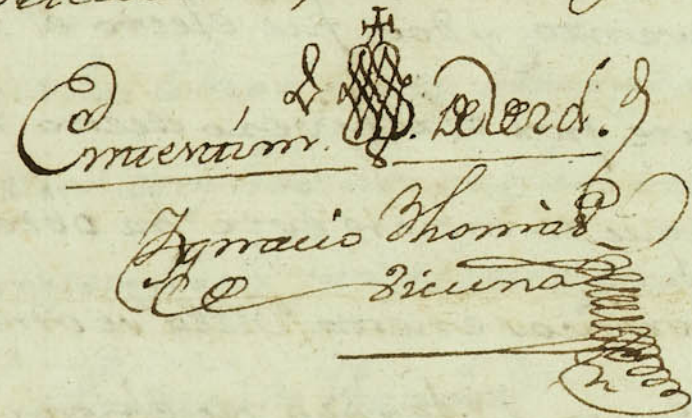 En testim. de Verd.
Ygnacio Thomas
de Vicuna